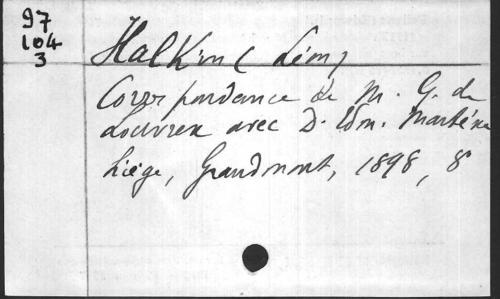 97
104
3
Halkin (Léon)
Correspondance de M. G. de
Louvrex avec D. Edm. Martène
Liège, Grandmont, 1898, 8°